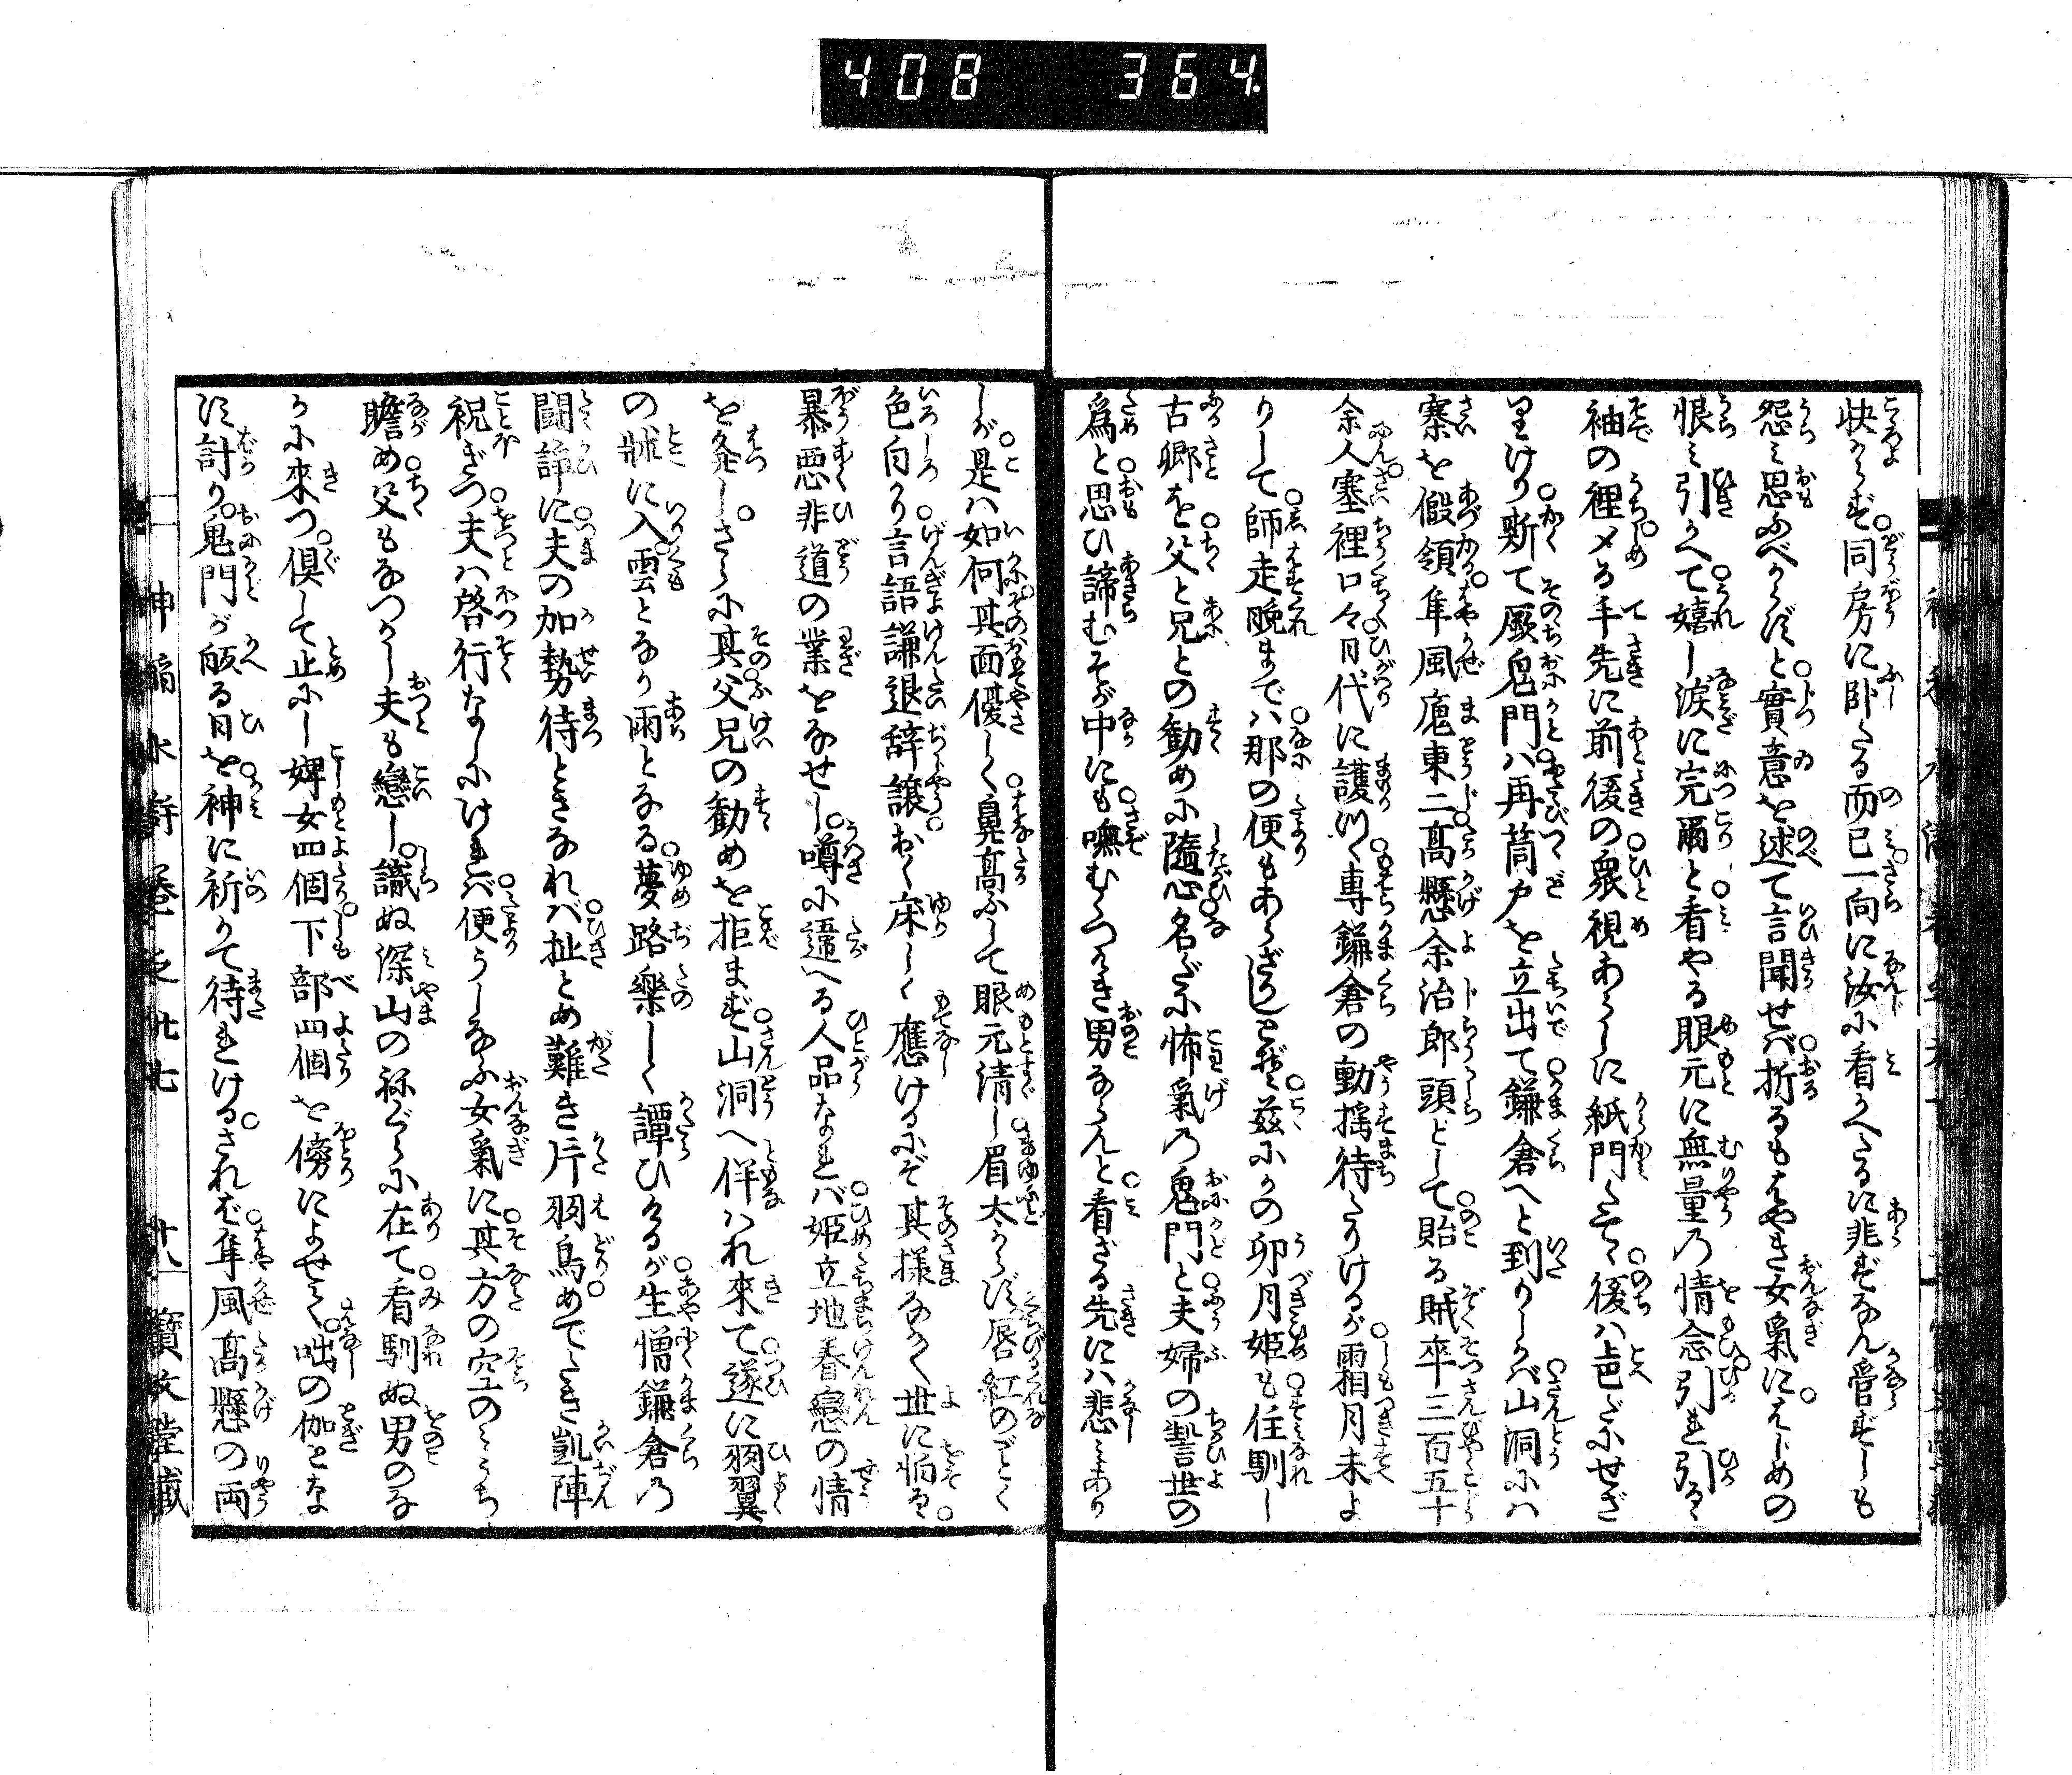 408 364
快からず同房に臥たる而已一向に汝に看かへたるに非ずなん管ずしも
怨み思ふべからずと實意を述て言聞せバ折るもはやき女氣にはじめの
恨ミ引かへて嬉し涙に完爾と看やる眼元に無量の情念引き引るゝ
袖の裡〆る手先に前後の衆視あらしに紙門たてゝ後ハ邑だにせざ
里けり斯て厥鬼門ハ再筒戸を立出て鎌倉へと到りしかバ山洞にハ
寨を假領隼風廘東二高懸余治郎頭として貽る賊卒三百五十
余人塞裡口々日代に護りつゝ専鎌倉の動揺待たりけるが霜月末よ
りして師走晩までハ那の便もあらざりしとぞ茲にかの卯月姫も住馴し
古郷を父と兄との勧めに隨心名だに怖氣乃鬼門と夫婦の誓世の
爲と思ひ諦むそが中にも嘸むくつけき男ならんと看ざる先にハ悲ミあり
しが是ハ如何其面優しく鼻高ふして眼元清し眉太からず唇紅のごとく
色白り言語謙退辞譲おく床しく應けるにぞ其様なかく世に怕るゝ
暴悪非道の業をなせし噂に違へる人品なれバ姫立地眷戀の情
を発しさらに其父兄の勧めを拒まず山洞へ伴はれ來て遂に羽翼
の牀に入雲となり雨となる夢路樂しく譚ひけるが生憎鎌倉乃
闘諍に夫の加勢待ときなれバ扯とめ難き片羽鳥めでたき凱陣
祝ぎつ夫ハ啓行なしにけれバ便うしなふ女氣に其方の空のミうち
瞻め父もなつかし夫も戀し識ぬ深山の祢ぐらに在て看馴ぬ男のな
かに來つ倶して止にし婢女四個下部四個を傍によせて咄の伽となし
に計り鬼門が皈る日を神に祈りて待れける。されど隼風高懸の両
神稲水滸傳巻之廿七 廿八 寶文堂藏